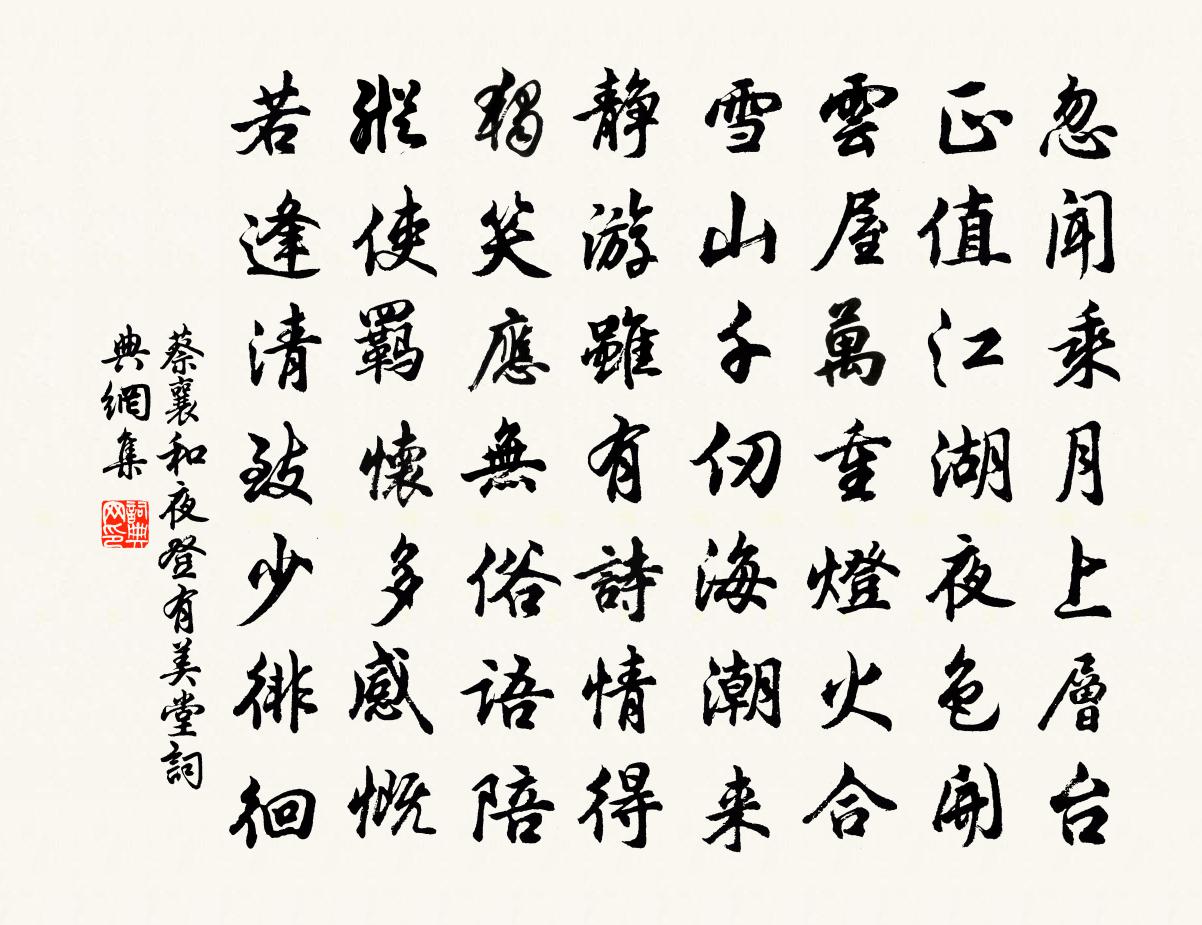 忽聞乘月上層台
正值江湖夜色開
雲屋萬重燈火合
雪山千仞海潮来
靜游雖有詩情得
獨笑應無俗語陪
縱使羈懷多感慨
若逢清致少徘徊
蔡襄和夜登有美堂詞
典網集
詞典网印